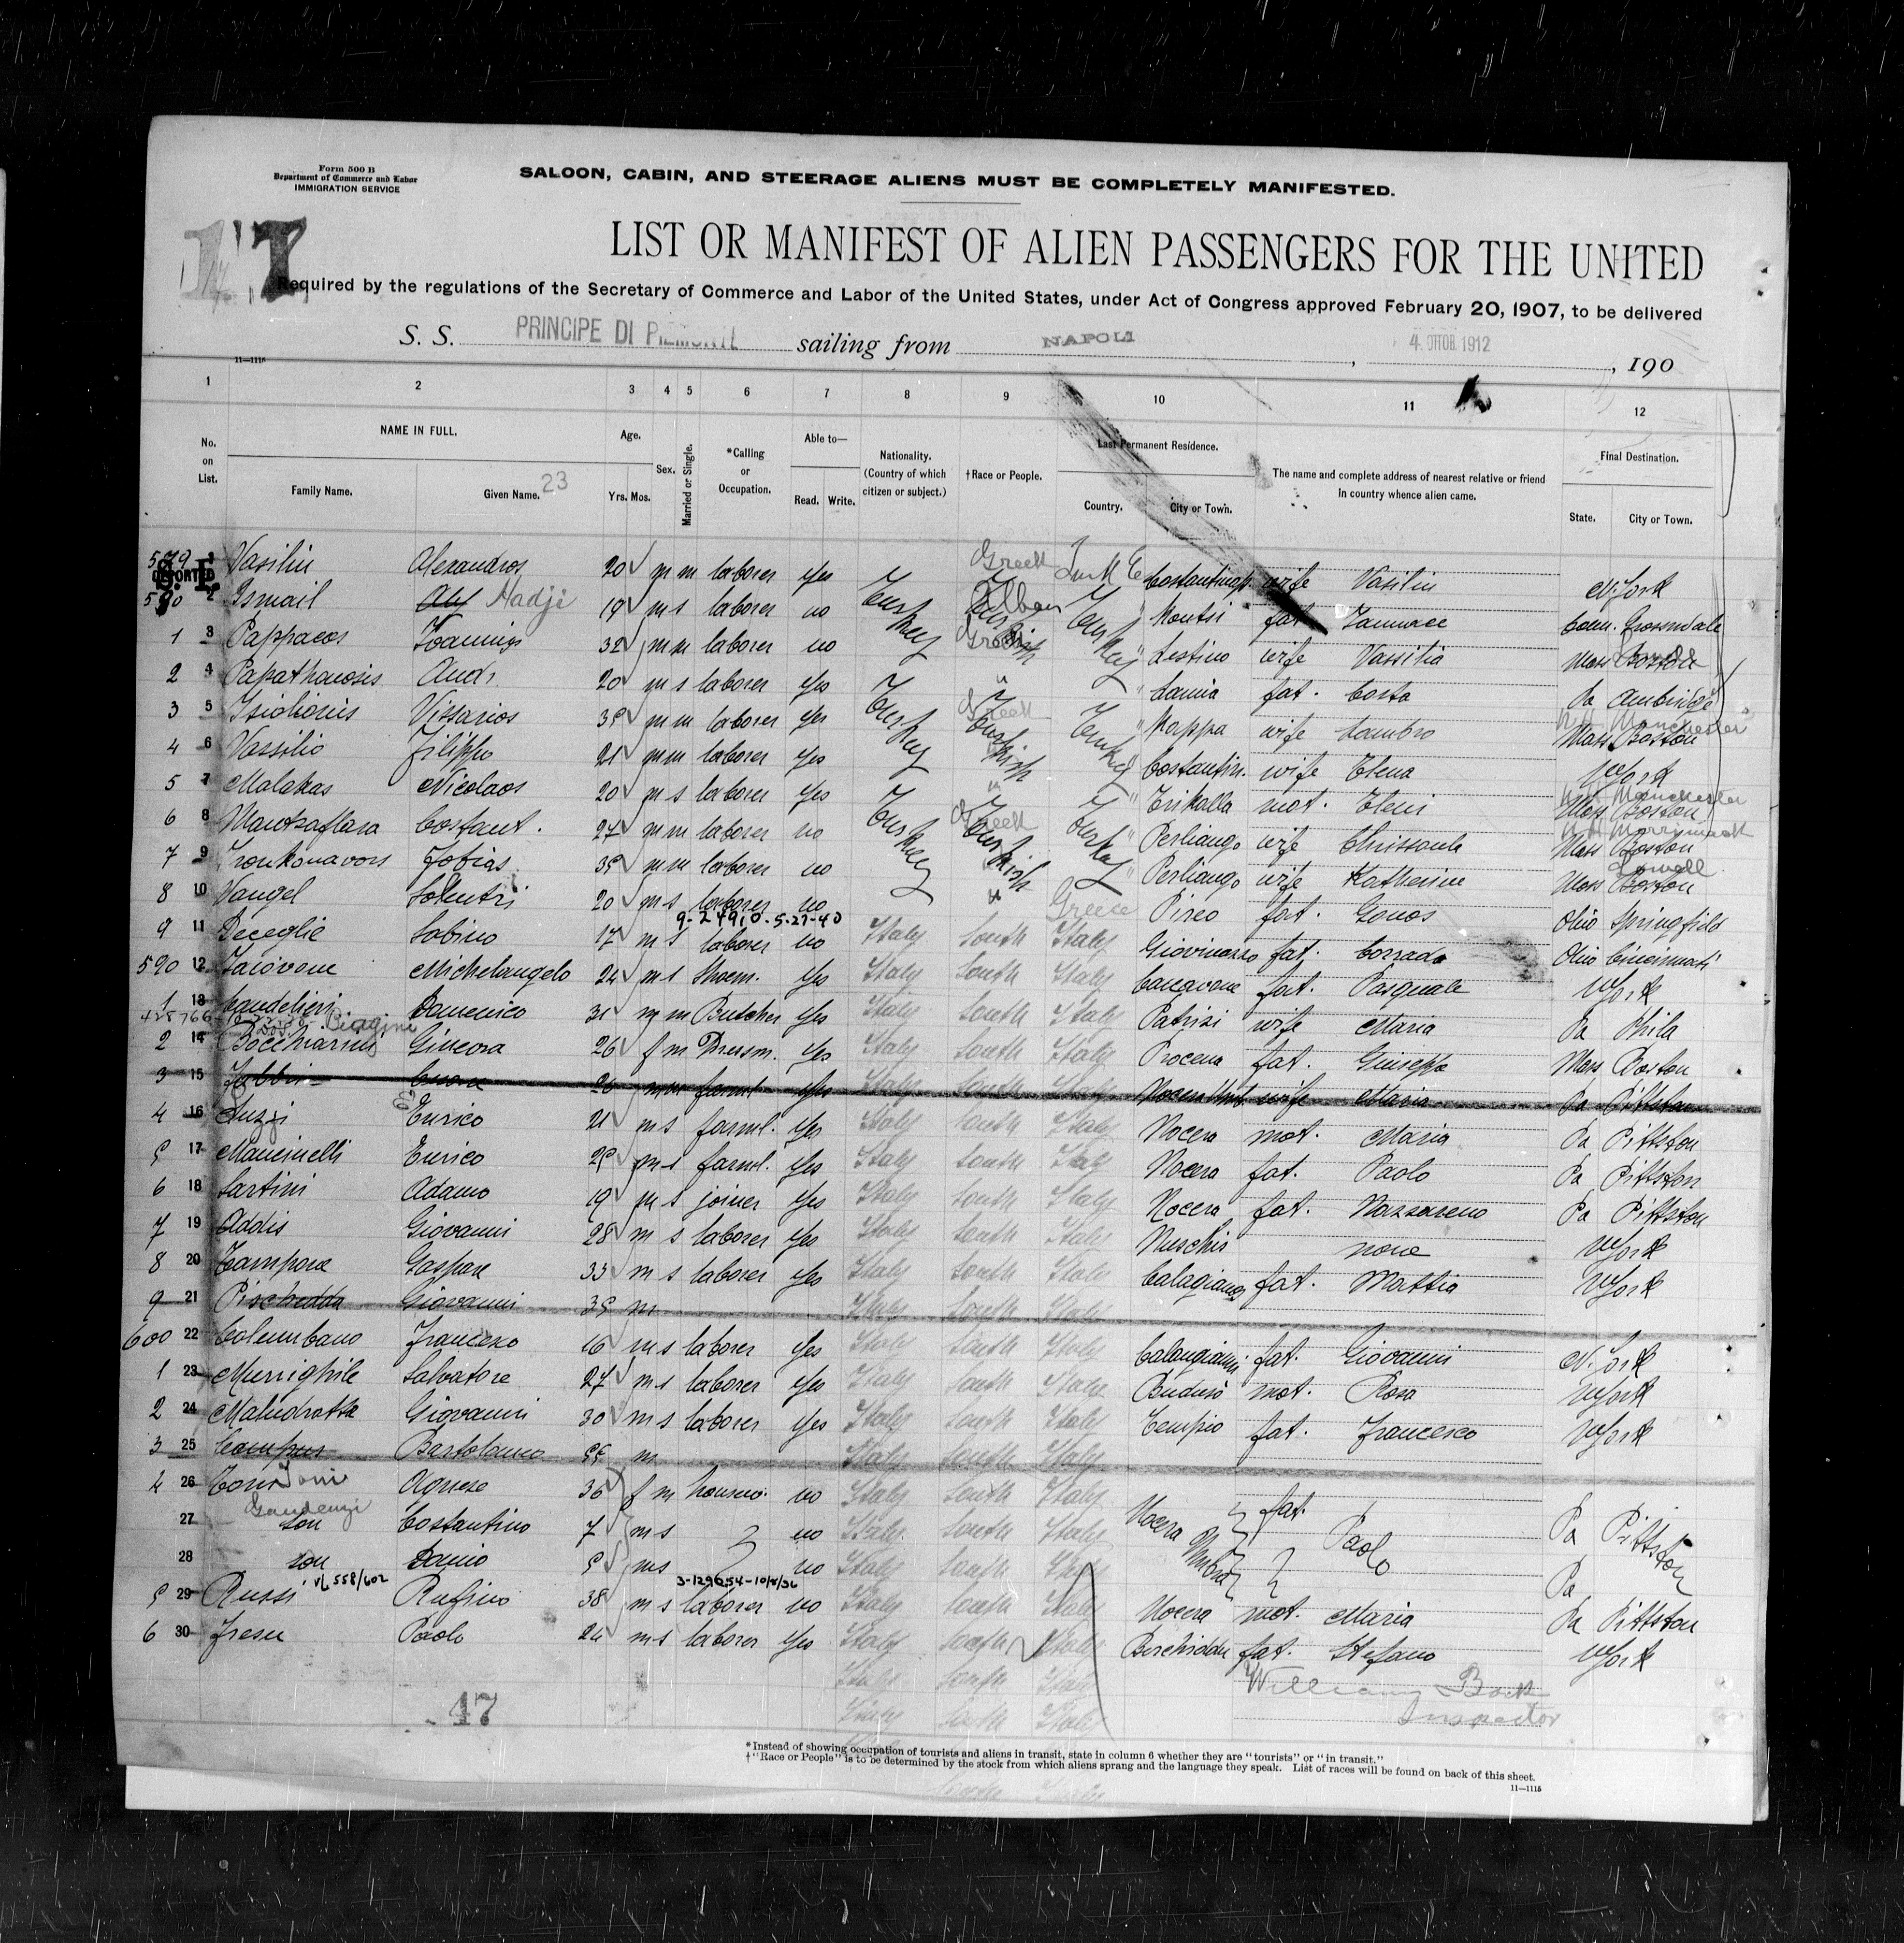 Form 500 B
Department of Commerce and Labor
IMMIGRATION SERVICE
SALOON, CABIN, AND STEERAGE ALIENS MUST BE COMPLETELY MANIFESTED.
17
LIST OR MANIFEST OF ALIEN PASSENGERS FOR THE UNITED
Required by the regulations of the Secretary of Commerce and Labor of the United States, under Act of Congress approved February 20, 1907, to be delivered
S. S. PRINCIPE DI PIEMONTE sailing from NAPOLI, 4. OTTOB. 1912, 190
11—1115
1 2 3 4 5 6 7 8 9 10 11 12
No. on List. NAME IN FULL. Family Name. Given Name. 23 Age. Yrs. Mos. Sex. Married or Single. *Calling or Occupation. Able to— Read. Write. Nationality. (Country of which citizen or subject.) †Race or People. Last Permanent Residence. Country. City or Town. The name and complete address of nearest relative or friend in country whence alien came. Final Destination. State. City or Town.
579 1 Vasiliu Alexandros 20 m m laborer yes Greek Turk E Costantinop. wife Vasiliu N.York
DEPORTED
580 2 Ismail Hadji 19 m s laborer no Turkey Alban fat.
1 3 Pappacos Ioannis 32 m m laborer no Greek wife Vassilia Mass Boston
2 4 Papathanosis And. 20 m s laborer yes " " Lamia fat. Costa Pa Ambridge
3 5 Vissarios 35 m m laborer yes Turkey Greek Turkey " Kappa wife Lambro Mass Boston N.H. Manchester
4 6 Vassilio Filippo 21 m m laborer yes Turkish Costantin. wife Elena N York
5 7 Malakas Nicolaos 20 m s laborer yes " " Trikalla mot. Eleni Mass Boston N.H. Manchester
6 8 Mantzaflara Costant. 27 m m laborer no Turkey Greek Turkey " Perliango wife Mass Boston
7 9 Tobias 35 m m laborer no Turkish " Perliango wife Katherine Mass Boston Lowell
8 10 Vangel 20 m s laborer no " Greece Pireo fat. Gonos Ohio Springfield
9-24910-5-27-40
9 11 Deceglie Sabino 17 m s laborer no Italy South Italy Giovinazzo fat. Corrado Ohio Cincinnati
590 12 Iaiovene Michelangelo 24 m s Shoem. yes Italy South Italy fat. Pasquale N York
1 13 Candelieri Domenico 31 m m Butcher yes Italy South Italy Patrizi wife Maria Pa Phila
2 14 Bocchiarini Ginevra 26 f m Dressm. yes Italy South Italy Procena fat. Giuseppe Mass Boston
3 15 Fabbri Cesare 26 m m farml. yes Italy South Italy Nocera Umb. wife Maria Pa Pittston
4 16 Luzzi Enrico 21 m s farml. yes Italy South Italy Nocera mot. Maria Pa Pittston
5 17 Mancinelli Enrico 25 m s farml. yes Italy South Italy Nocera fat. Paolo Pa Pittston
6 18 Sartini Adamo 19 m s joiner yes Italy South Italy Nocera fat. Nazzareno Pa Pittston
7 19 Addis Giovanni 28 m s laborer yes Italy South Italy Nuschis none N York
8 20 Tampora Gaspare 33 m s laborer yes Italy South Italy Calagianos fat. Mattia N York
9 21 Pischedda Giovanni 35 m Italy South Italy
600 22 Columbano Francesco 16 m s laborer yes Italy South Italy Calangianni fat. Giovanni N.York
1 23 Murrighile Salvatore 27 m s laborer yes Italy South Italy Buduso mot. Rosa N York
2 24 Giovanni 30 m s laborer yes Italy South Italy Tempio fat. Francesco N York
3 25 Campus Bartolomeo 55 m Italy South Italy
4 26 Toni Agnese 36 f m housew. no Italy South Italy Nocera Umbra fat. Paolo Pa Pittston
Gaudenzi
27 son Costantino 7 m s no Italy South Italy
28 son Danio 5 m s no Italy South Italy Pa
V/L 558/602 3-129654-10/8/36
5 29 Russi Rufino 38 m s laborer no Italy South Italy Nocera mot. Maria Pa Pittston
6 30 Fresu Paolo 24 m s laborer yes Italy South Italy Berchidda fat. Stefano N York
Italy South Italy
Italy South Italy
47
William
Inspector
*Instead of showing occupation of tourists and aliens in transit, state in column 6 whether they are "tourists" or "in transit."
†"Race or People" is to be determined by the stock from which aliens sprang and the language they speak. List of races will be found on back of this sheet.
11—1115